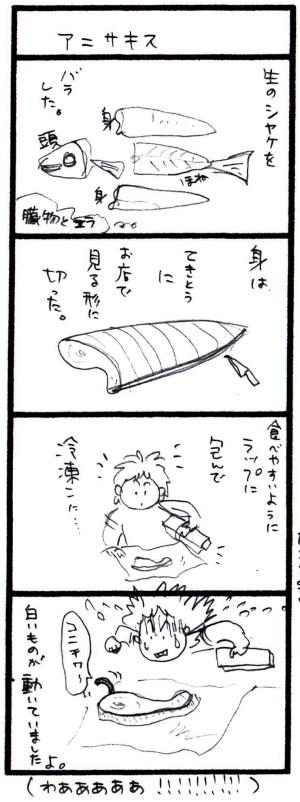 アニサキス
生のシャケを
バラ
した。
身
頭
ほね
身
臓物とエラ
身は
てきとう
に
お店で
見る形に
切った。
食べやすいように
ラップに
包んで
冷凍こに…
コニチワ〜
白いものが動いていましたよ。
(わあああああ!!!!!!!!!)